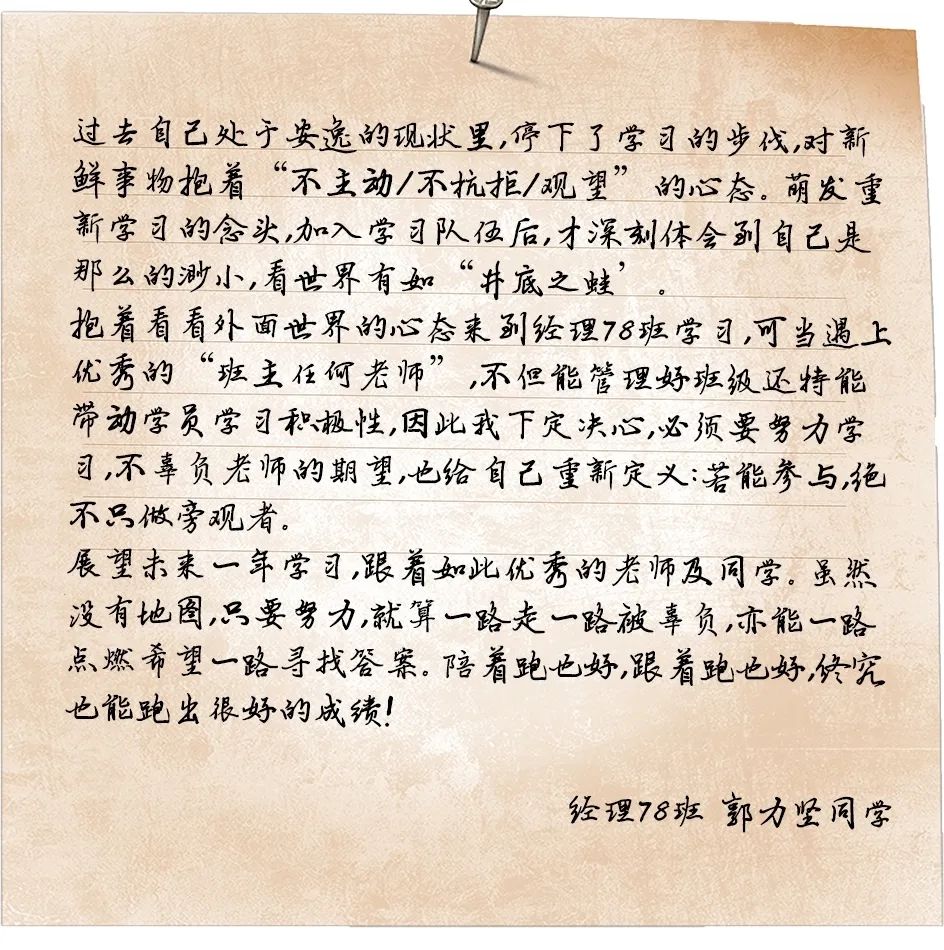 过去自己处于安逸的现状里,停下了学习的步伐,对新
鲜事物抱着“不主动/不抗拒/观望”的心态。萌发重
新学习的念头,加入学习队伍后,才深刻体会到自己是
那么的渺小,看世界有如“井底之蛙’。
抱着看看外面世界的心态来到经理78班学习,可当遇上
优秀的“班主任何老师”,不但能管理好班级还特能
带动学员学习积极性,因此我下定决心,必须要努力学
习,不辜负老师的期望,也给自己重新定义:若能参与,绝
不只做旁观者。
展望未来一年学习,跟着如此优秀的老师及同学。虽然
没有地图,只要努力,就算一路走一路被辜负,亦能一路
点燃希望一路寻找答案。陪着跑也好,跟着跑也好,终究
也能跑出很好的成绩!
经理78班 郭力坚同学